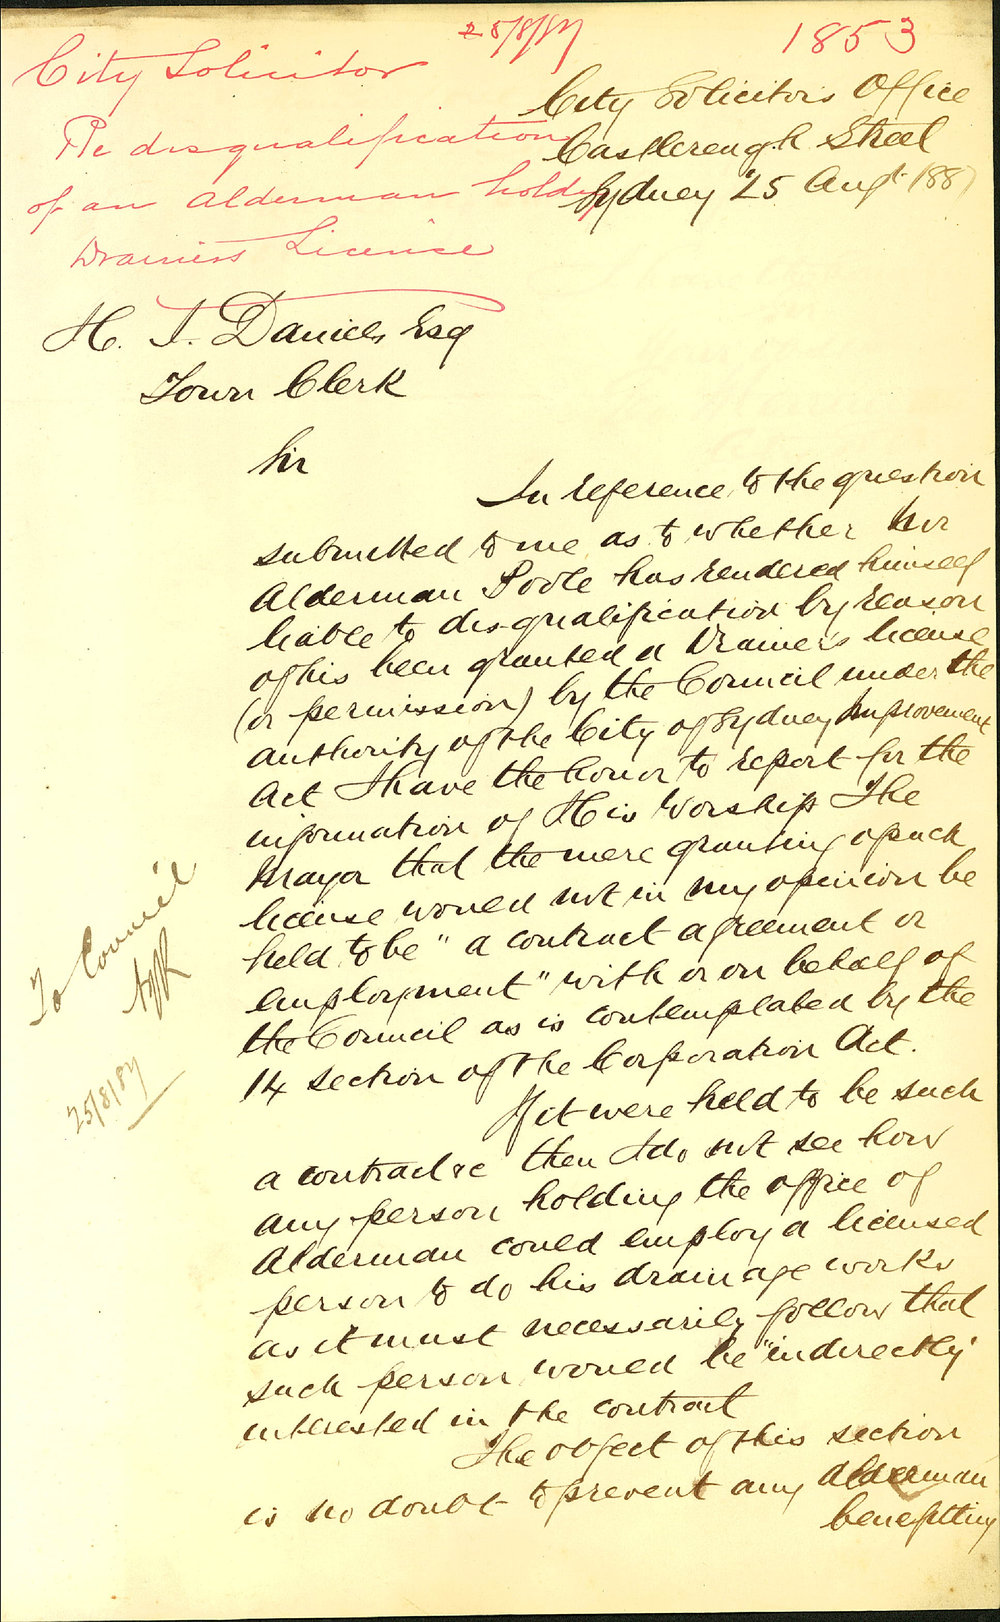 25/8/87
1853
City Solicitor
Re disqualification
of an Alderman holdg
Drainers License
City Solicitors Office
Castlereagh Street
Sydney 25 Augt 1887
H. J. Daniels Esq
Town Clerk
Sir
In reference to the question
submitted to me as to whether Mr
Alderman Poole has rendered himself
liable to disqualification by reason
of his been granted a Drainers license
(or permission) by the Council under the
authority of the City of Sydney Improvement
Act I have the honor to report for the
information of His Worship The
Mayor that the mere granting of such
license would not in my opinion be
held to be "a contract agreement or
employment" with or on behalf of
the Council as is contemplated by the
14 section of the Corporation Act.
If it were held to be such
a contract &c then I do not see how
any person holding the office of
Alderman could employ a licensed
person to do his drainage works
as it must necessarily follow that
such person would be "indirectly"
interested in the contract
The object of this section
is no doubt to prevent any Alderman
benefitting
To Council
25/8/87